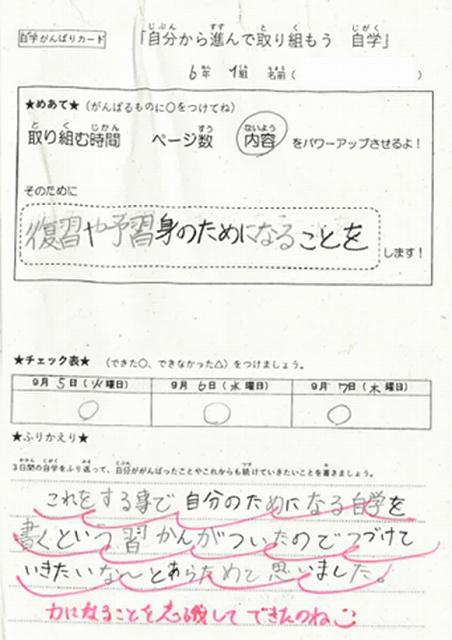 自学がんばりカード
「自分から進んで取り組もう 自学」
6年 1組 名前( )
★めあて★ (がんばるものに○をつけてね)
取り組む時間 ページ数 内容 をパワーアップさせるよ!
そのために
復習や予習身のためになることを
します!
★チェック表★ (できた○、できなかった△)をつけましょう。
9月5日(火曜日) 9月6日(水曜日) 9月7日(木曜日)
○ ○ ○
★ふりかえり★
3日間の自学をふり返って、自分ががんばったことやこれからも続けていきたいことを書きましょう。
これをする事で自分のためになる自学を
書くという習かんがついたのでつづけて
いきたいな〜とあらためて思いました。
力になることを してできたのね